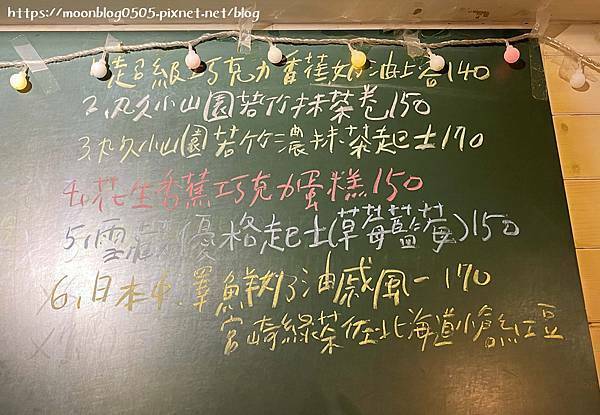 https://moonblog0505.pixnet.net/blog
超級巧克力香蕉奶油上香140
2.丸久小山園若竹抹茶卷150
3.丸久小山園若竹濃抹茶起士170
4.花生香蕉巧克力蛋糕150
5.雪 優格起士(草莓藍莓)150
6.日本中澤鮮奶油戚風-170
宮崎綠茶佐北海道小倉紅豆